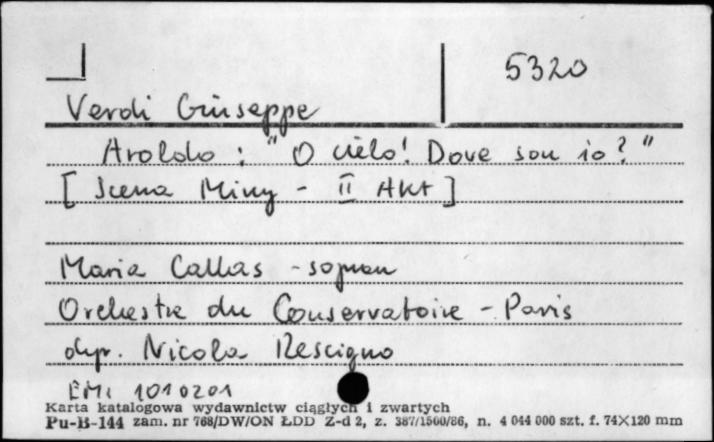 5320
Verdi Giuseppe
Aroldo : "O cielo! Dove son io?"
[Scena Miny - II Akt]
Maria Callas - sopran
Orchestre du Conservatoire - Paris
dyr. Nicola Rescigno
EMI 1010201
Karta katalogowa wydawnictw ciągłych i zwartych
Pu-B-144 zam. nr 768/DW/ON ŁDD Z-d 2, z. 387/1500/86, n. 4 044 000 szt. f. 74×120 mm